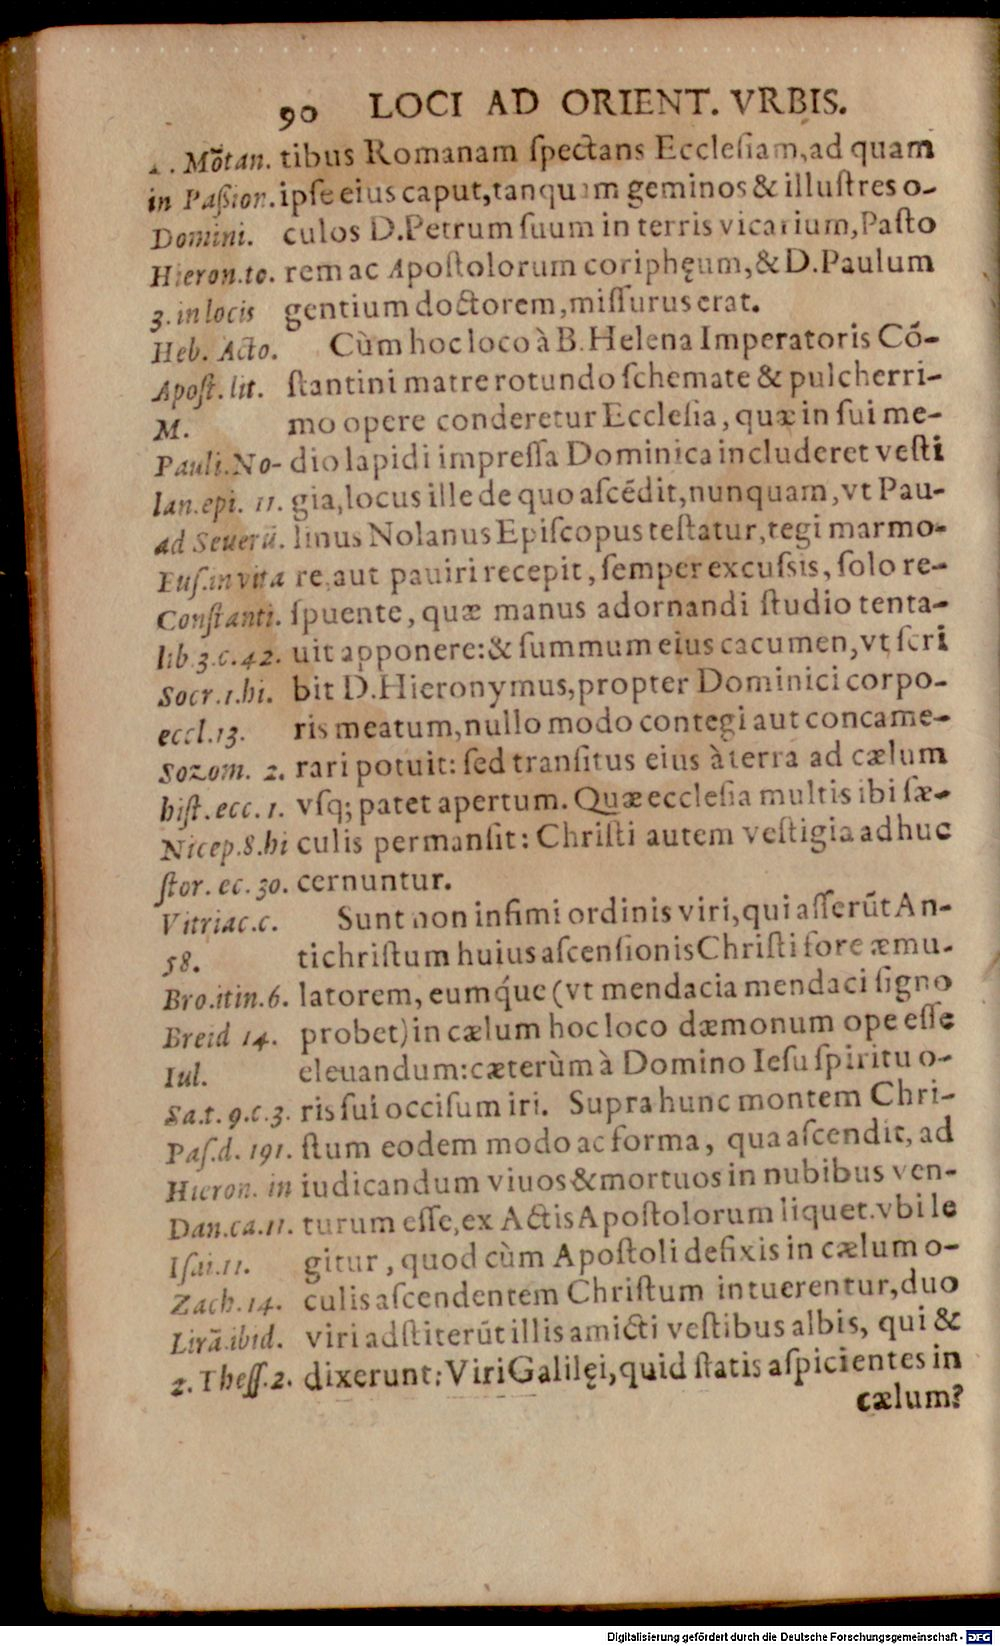 90 LOCI AD ORIENT. VRBIS.
Mõtan. tibus Romanam ſpectans Eccleſiam, ad quam
in Paßion. ipſe eius caput, tanquam geminos & illuſtres o-
Domini. culos D. Petrum ſuum in terris vicarium, Paſto
Hieron. to. rem ac Apoſtolorum coriphęum, & D. Paulum
3. in locis gentium doctorem, miſſurus erat.
Heb. Acto. Cùm hoc loco à B. Helena Imperatoris Cõ-
Apoſt. lit. ſtantini matre rotundo ſchemate & pulcherri-
M. mo opere conderetur Eccleſia, quæ in ſui me-
Pauli. No- dio lapidi impreſſa Dominica includeret veſti
lan. epi. 11. gia, locus ille de quo aſcẽdit, nunquam, vt Pau-
ad Seuerũ. linus Nolanus Epiſcopus teſtatur, tegi marmo-
Euſ. in vita re, aut pauiri recepit, ſemper excuſsis, ſolo re-
Conſtanti. ſpuente, quæ manus adornandi ſtudio tenta-
lib. 3. c. 42. uit apponere: & ſummum eius cacumen, vt ſcri
Socr. 1. hi. bit D. Hieronymus, propter Dominici corpo-
eccl. 13. ris meatum, nullo modo contegi aut concame-
Sozom. 2. rari potuit: ſed tranſitus eius à terra ad cælum
hiſt. ecc. 1. vſq; patet apertum. Quæ eccleſia multis ibi ſæ-
Nicep. 8. hi culis permanſit: Chriſti autem veſtigia adhuc
ſtor. ec. 30. cernuntur.
Vitriac. c. Sunt non infimi ordinis viri, qui aſſerũt An-
58. tichriſtum huius aſcenſionis Chriſti fore æmu-
Bro. itin. 6. latorem, eumq́ue (vt mendacia mendaci ſigno
Breid 14. probet) in cælum hoc loco dæmonum ope eſſe
Iul. eleuandum: cæterùm à Domino Ieſu ſpiritu o-
Sa. t. 9. c. 3. ris ſui occiſum iri. Supra hunc montem Chri-
Paſ. d. 191. ſtum eodem modo ac forma, qua aſcendit, ad
Hieron. in iudicandum viuos & mortuos in nubibus ven-
Dan. ca. 11. turum eſſe, ex Actis Apoſtolorum liquet. vbi le
Iſai. 11. gitur, quod cùm Apoſtoli defixis in cælum o-
Zach. 14. culis aſcendentem Chriſtum intuerentur, duo
Lirã. ibid. viri adſtiterũt illis amicti veſtibus albis, qui &
2. Theſſ. 2. dixerunt: Viri Galilęi, quid ſtatis aſpicientes in
cælum?
Digitalisierung gefördert durch die Deutsche Forschungsgemeinschaft - DFG